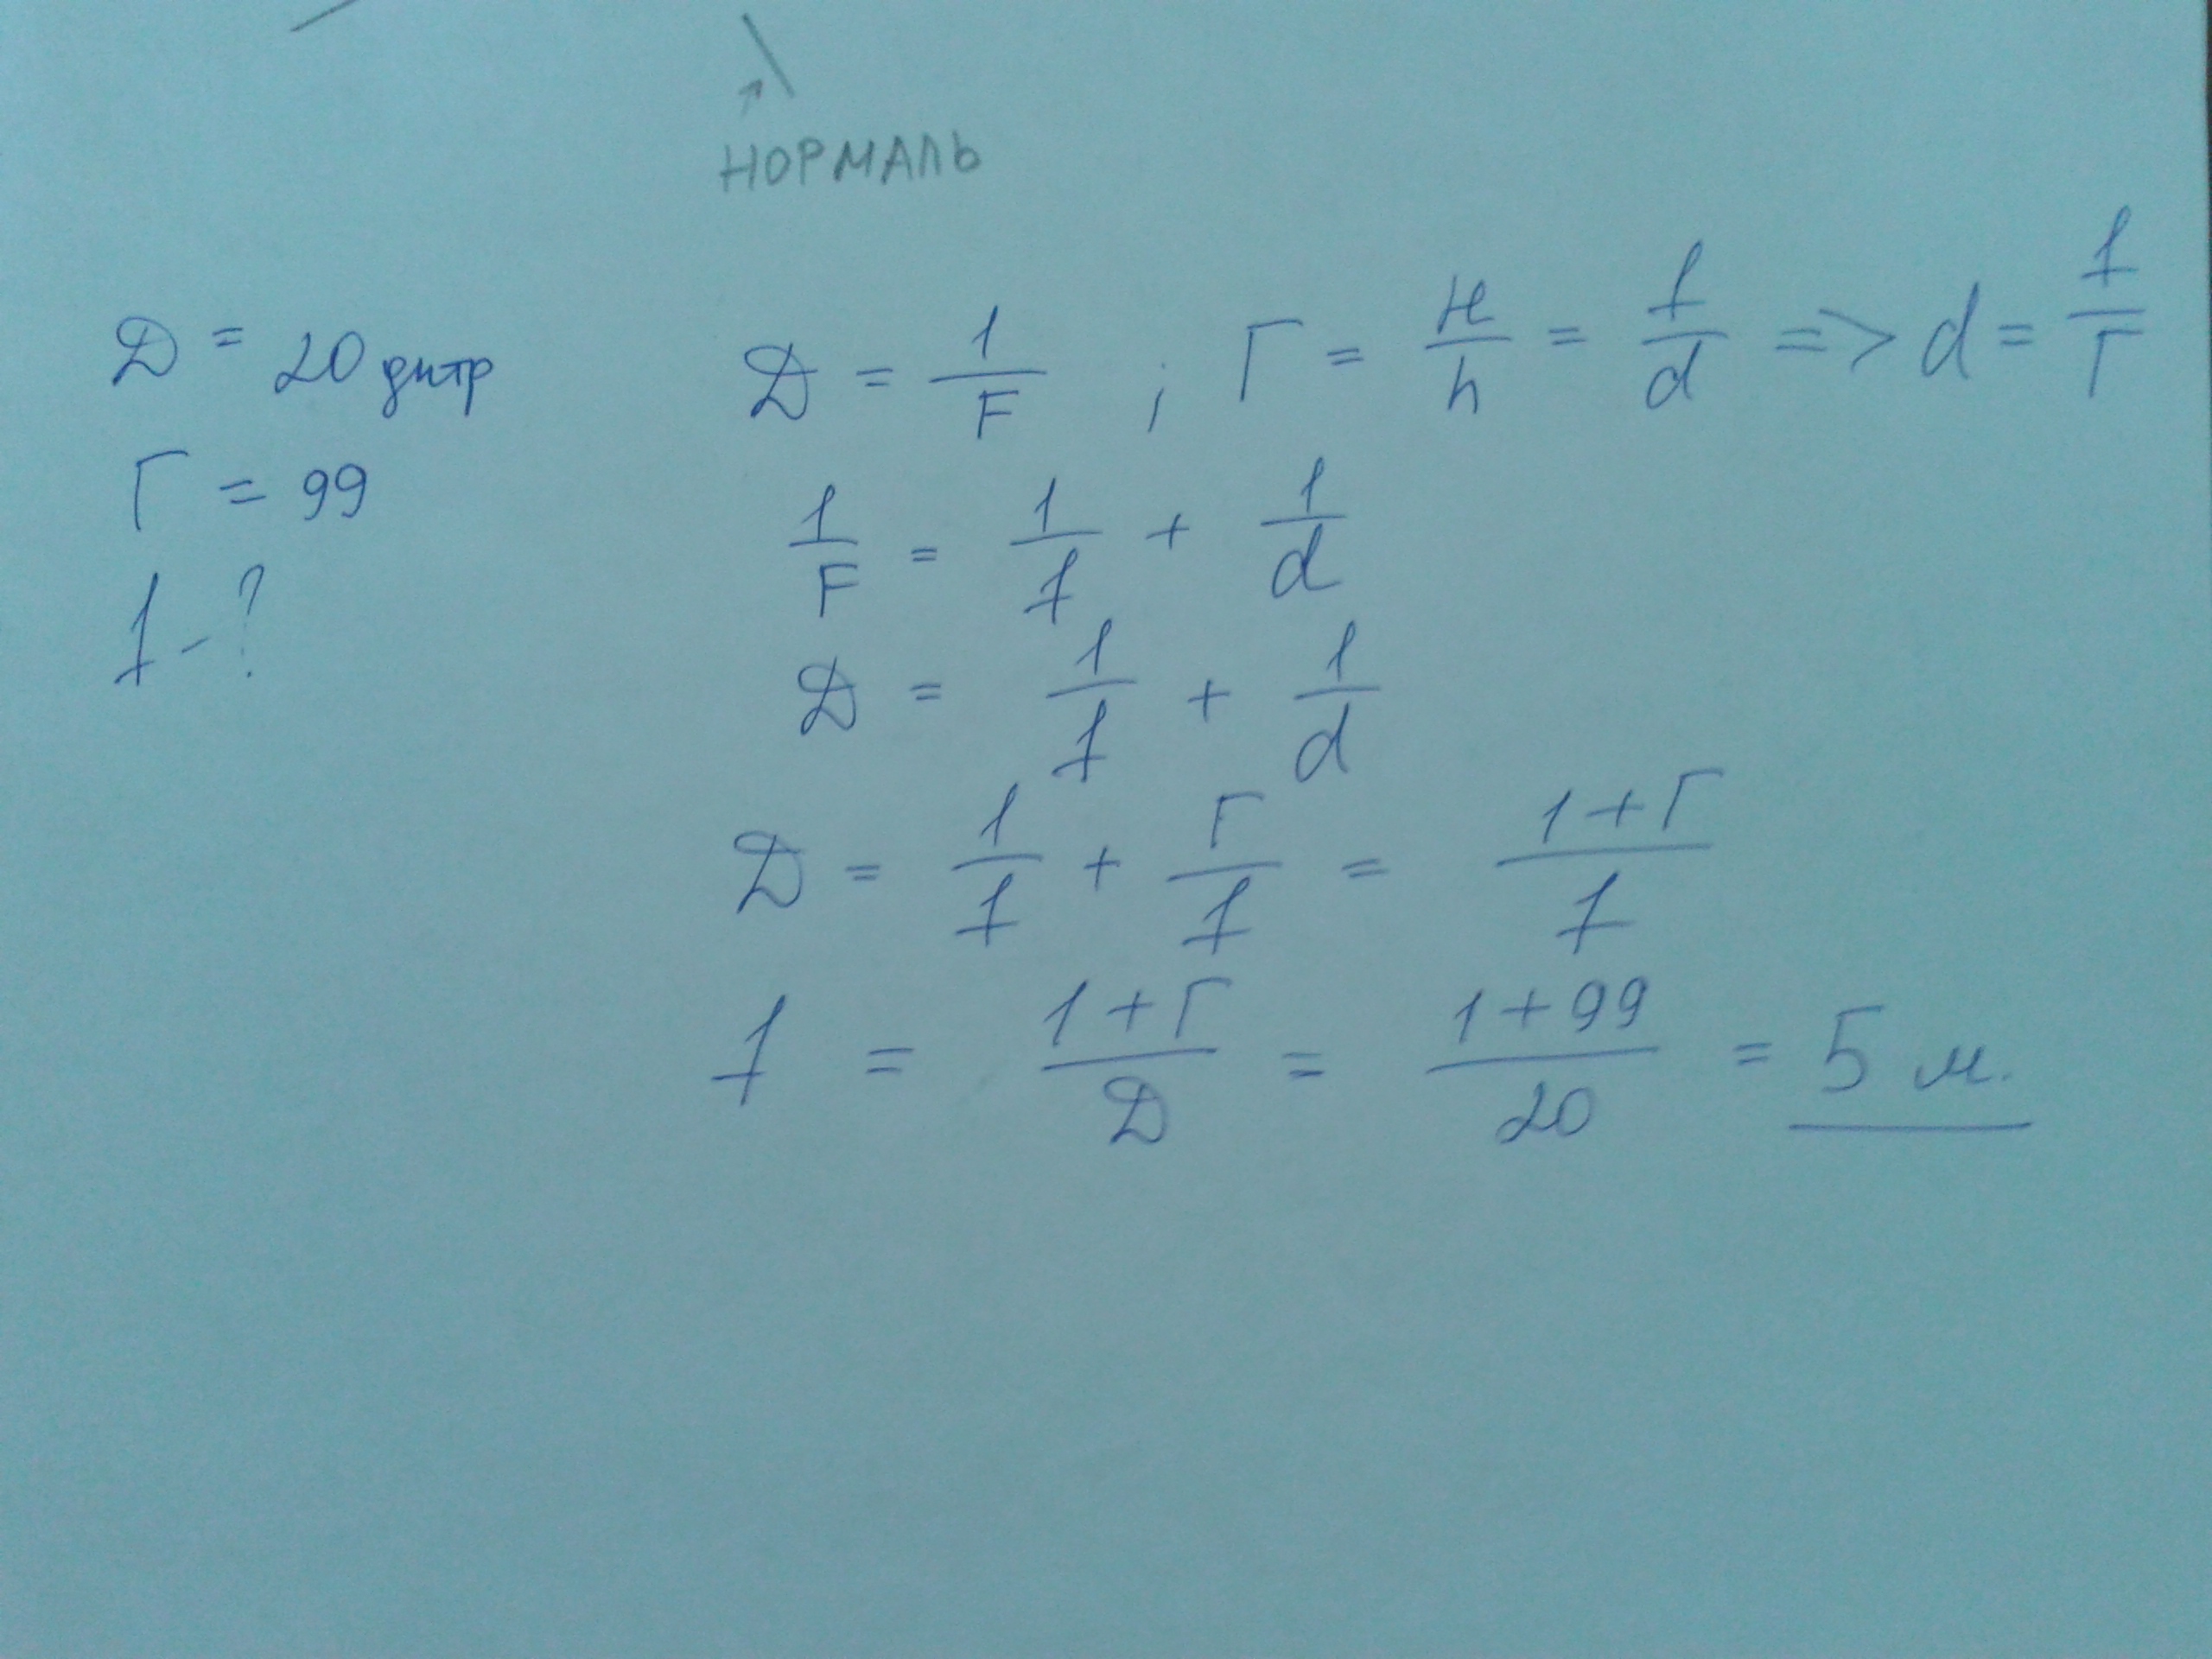 НОРМАЛЬ
D = 20 дптр
Г = 99
f - ?
D = 1/F ; Г = H/h = f/d => d = f/Г
1/F = 1/f + 1/d
D = 1/f + 1/d
D = 1/f + Г/f = 1+Г/f
f = 1+Г/D = 1+99/20 = 5 м.